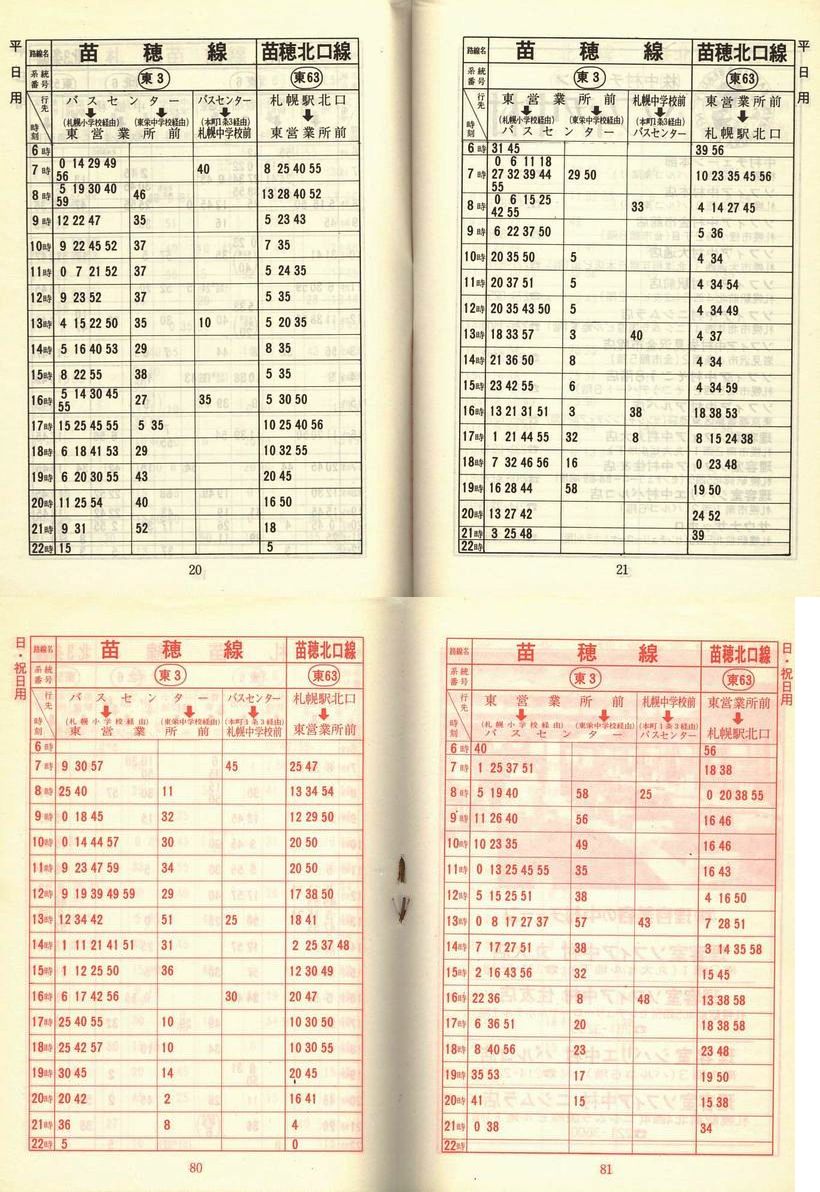 平日用
路線名 苗穂線 苗穂北口線
系統番号 東3 東63
行先 バスセンター バスセンター 札幌駅北口
(札幌小学校経由) (東栄中学校経由) (本町1条3経由)
時刻 東営業所前 札幌中学校前 東営業所前
6時
7時 0 14 29 49 56 40 8 25 40 55
8時 5 19 30 40 59 46 13 28 40 52
9時 12 22 47 35 5 23 43
10時 9 22 45 52 37 7 35
11時 0 7 21 52 37 5 24 35
12時 9 23 52 37 5 35
13時 4 15 22 50 35 10 5 20 35
14時 5 16 40 53 29 8 35
15時 8 22 55 38 5 35
16時 5 14 30 45 55 27 35 5 30 50
17時 15 25 45 55 5 35 10 25 40 56
18時 6 18 41 53 29 10 32 55
19時 6 20 30 55 43 20 45
20時 11 25 54 40 16 50
21時 9 31 52 18
22時 15 5
20
平日用
路線名 苗穂線 苗穂北口線
系統番号 東3 東63
行先 東営業所前 札幌中学校前 東営業所前
(札幌小学校経由) (東栄中学校経由) (本町1条3経由)
時刻 バスセンター バスセンター 札幌駅北口
6時 31 45 39 56
7時 0 6 11 18 27 32 39 44 55 29 50 10 23 35 45 56
8時 0 6 15 25 42 55 33 4 14 27 45
9時 6 22 37 50 5 36
10時 20 35 50 5 4 34
11時 20 37 51 5 4 34 54
12時 20 35 43 50 5 4 34 49
13時 18 33 57 3 40 4 37
14時 21 36 50 8 4 34
15時 23 42 55 6 4 34 59
16時 13 21 31 51 3 38 18 38 53
17時 1 21 44 55 32 8 8 15 24 38
18時 7 32 46 56 16 0 23 48
19時 16 28 44 58 19 50
20時 13 27 42 24 52
21時 3 25 48 39
22時
21
日・祝日用
路線名 苗穂線 苗穂北口線
系統番号 東3 東63
行先 バスセンター バスセンター 札幌駅北口
(札幌小学校経由) (東栄中学校経由) (本町1条3経由)
時刻 東営業所前 札幌中学校前 東営業所前
6時
7時 9 30 57 45 25 47
8時 25 40 11 13 34 54
9時 0 18 45 32 12 29 50
10時 0 14 44 57 30 20 50
11時 9 23 47 59 34 20 50
12時 9 19 39 49 59 29 17 38 50
13時 12 34 42 51 25 18 41
14時 1 11 21 41 51 31 2 25 37 48
15時 1 12 25 50 36 12 30 49
16時 6 17 42 56 30 20 47
17時 25 40 55 10 10 30 50
18時 25 42 57 10 10 30 55
19時 30 45 14 20 45
20時 20 42 2 16 41
21時 36 8 4
22時 5 0
80
日・祝日用
路線名 苗穂線 苗穂北口線
系統番号 東3 東63
行先 東営業所前 札幌中学校前 東営業所前
(札幌小学校経由) (東栄中学校経由) (本町1条3経由)
時刻 バスセンター バスセンター 札幌駅北口
6時 40 56
7時 1 25 37 51 18 38
8時 5 19 40 58 25 0 20 38 55
9時 11 26 40 56 16 46
10時 10 23 35 49 16 46
11時 0 13 25 45 55 35 16 43
12時 5 15 25 51 38 4 16 50
13時 0 8 17 27 37 57 43 7 28 51
14時 7 17 27 51 38 3 14 35 58
15時 2 16 43 56 32 15 45
16時 22 36 8 48 13 38 58
17時 6 36 51 20 18 38 58
18時 8 40 56 23 23 48
19時 35 53 17 19 50
20時 41 15 15 38
21時 0 38 34
22時
81